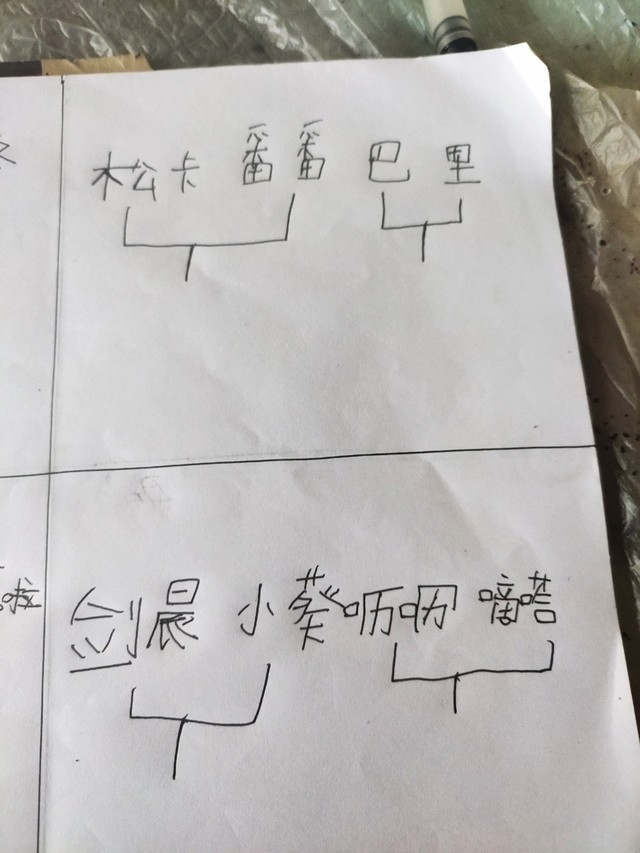 松卡 番番 巴 里
啦 剑晨 小葵 呖呖 嘀嗒